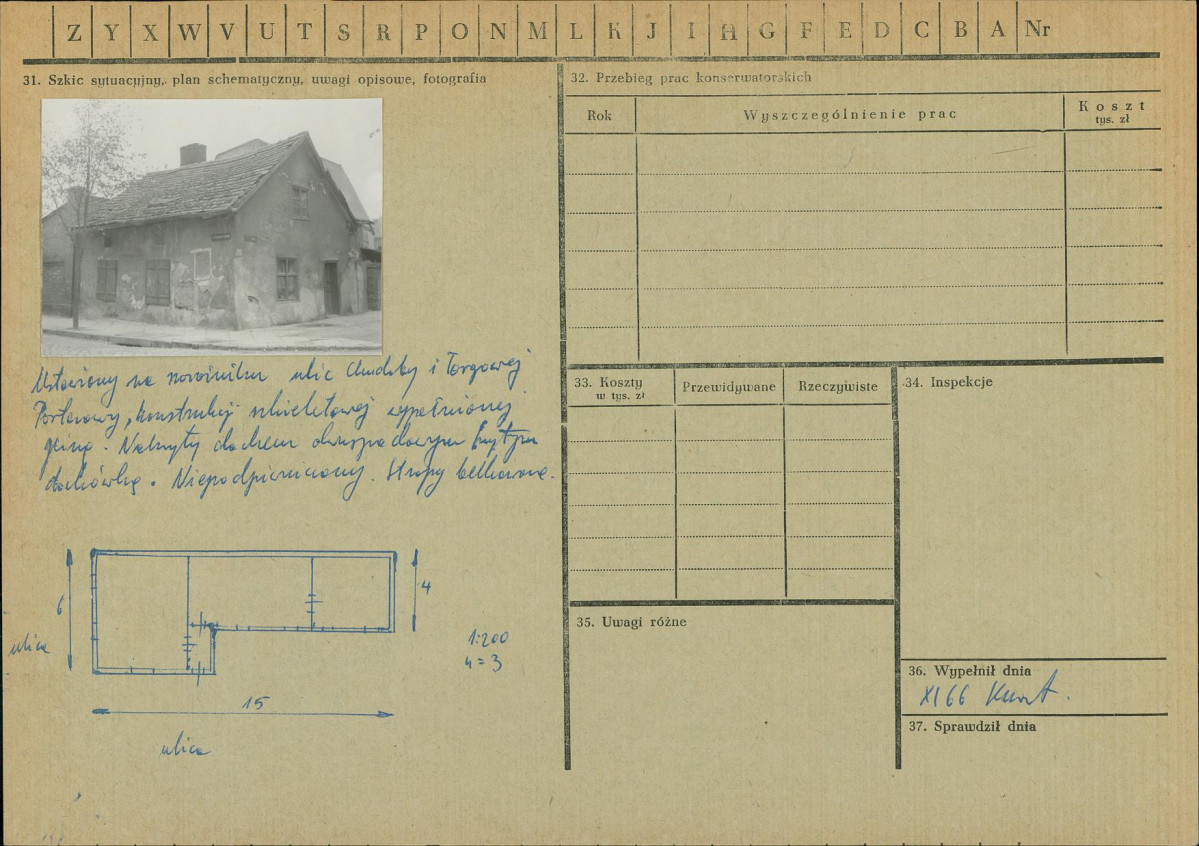 Z Y X W V U T S R P O N M L K J I H G F E D C B A Nr
31. Szkic sytuacyjny, plan schematyczny, uwagi opisowe, fotografia
na narożniku ulic i Targowej
Parterowy, konstrukcji szkieletowej wypełnionej
gliną. Nakryty dachem dwuspadowym krytym
dachówką. Niepodpiwniczony. Stropy belkowane.
6
4
ulica
1:200
h=3
15
ulica
32. Przebieg prac konserwatorskich
Rok
Wyszczególnienie prac
Koszt
tys. zł
33. Koszty
w tys. zł
Przewidywane
Rzeczywiste
34. Inspekcje
35. Uwagi różne
36. Wypełnił dnia
XI 66
37. Sprawdził dnia